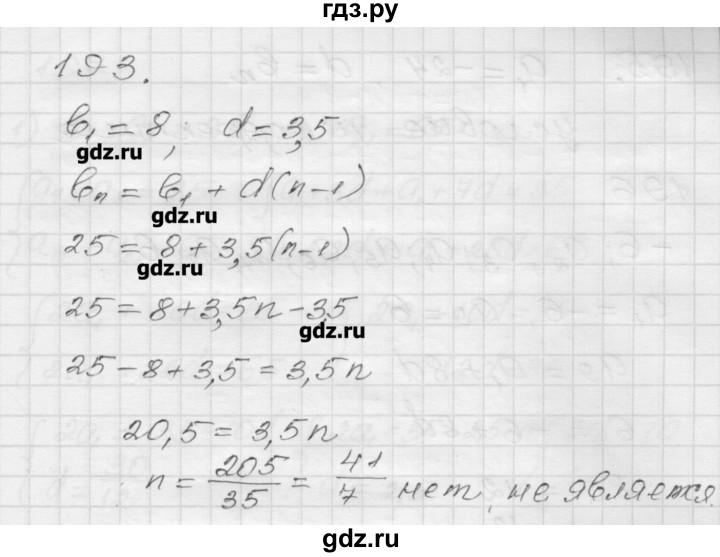 гдз.ру
193.
b₁ = 8; d = 3,5
gdz.ru
bₙ = b₁ + d(n-1)
gdz.ru
25 = 8 + 3,5(n-1)
gdz.ru
25 = 8 + 3,5n - 3,5
gdz.ru
25 - 8 + 3,5 = 3,5n
20,5 = 3,5n
n = 205/35 = 41/7 нет, не является.